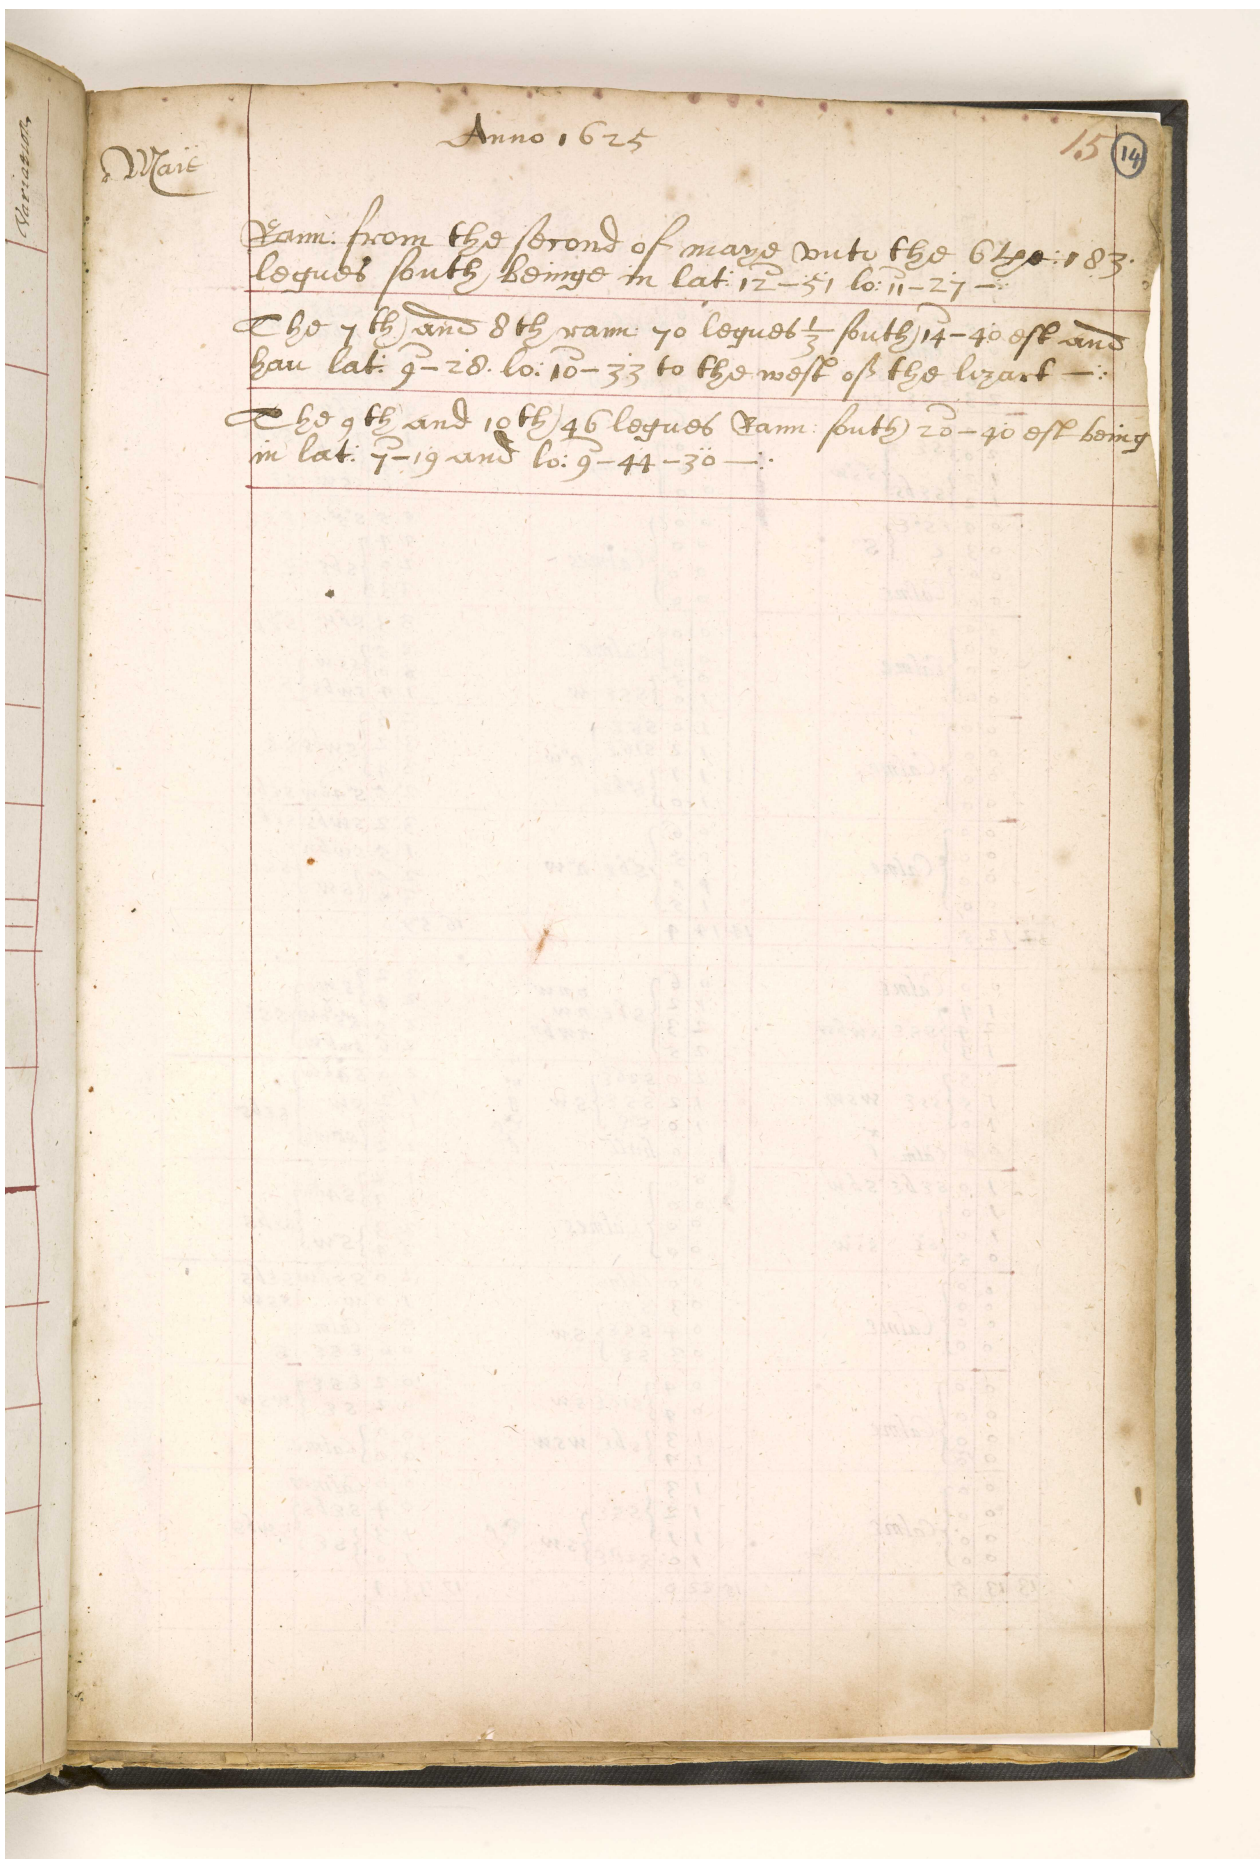 Variation
Anno 1625
15 14
Maie
Rann: from the second of maye vnto the 6th: 183.
legues south beinge in lat: 12-51 lo: 11-27 —:
The 7th and 8th rann: 70 legues 1/3 south 14-40 est and
hau lat: 9-28. lo: 10-33 to the west off the lizart —:
The 9th and 10th 46 legues Rann: south 20-40 est being
in lat: 7-19 and lo: 9-44-30 —: